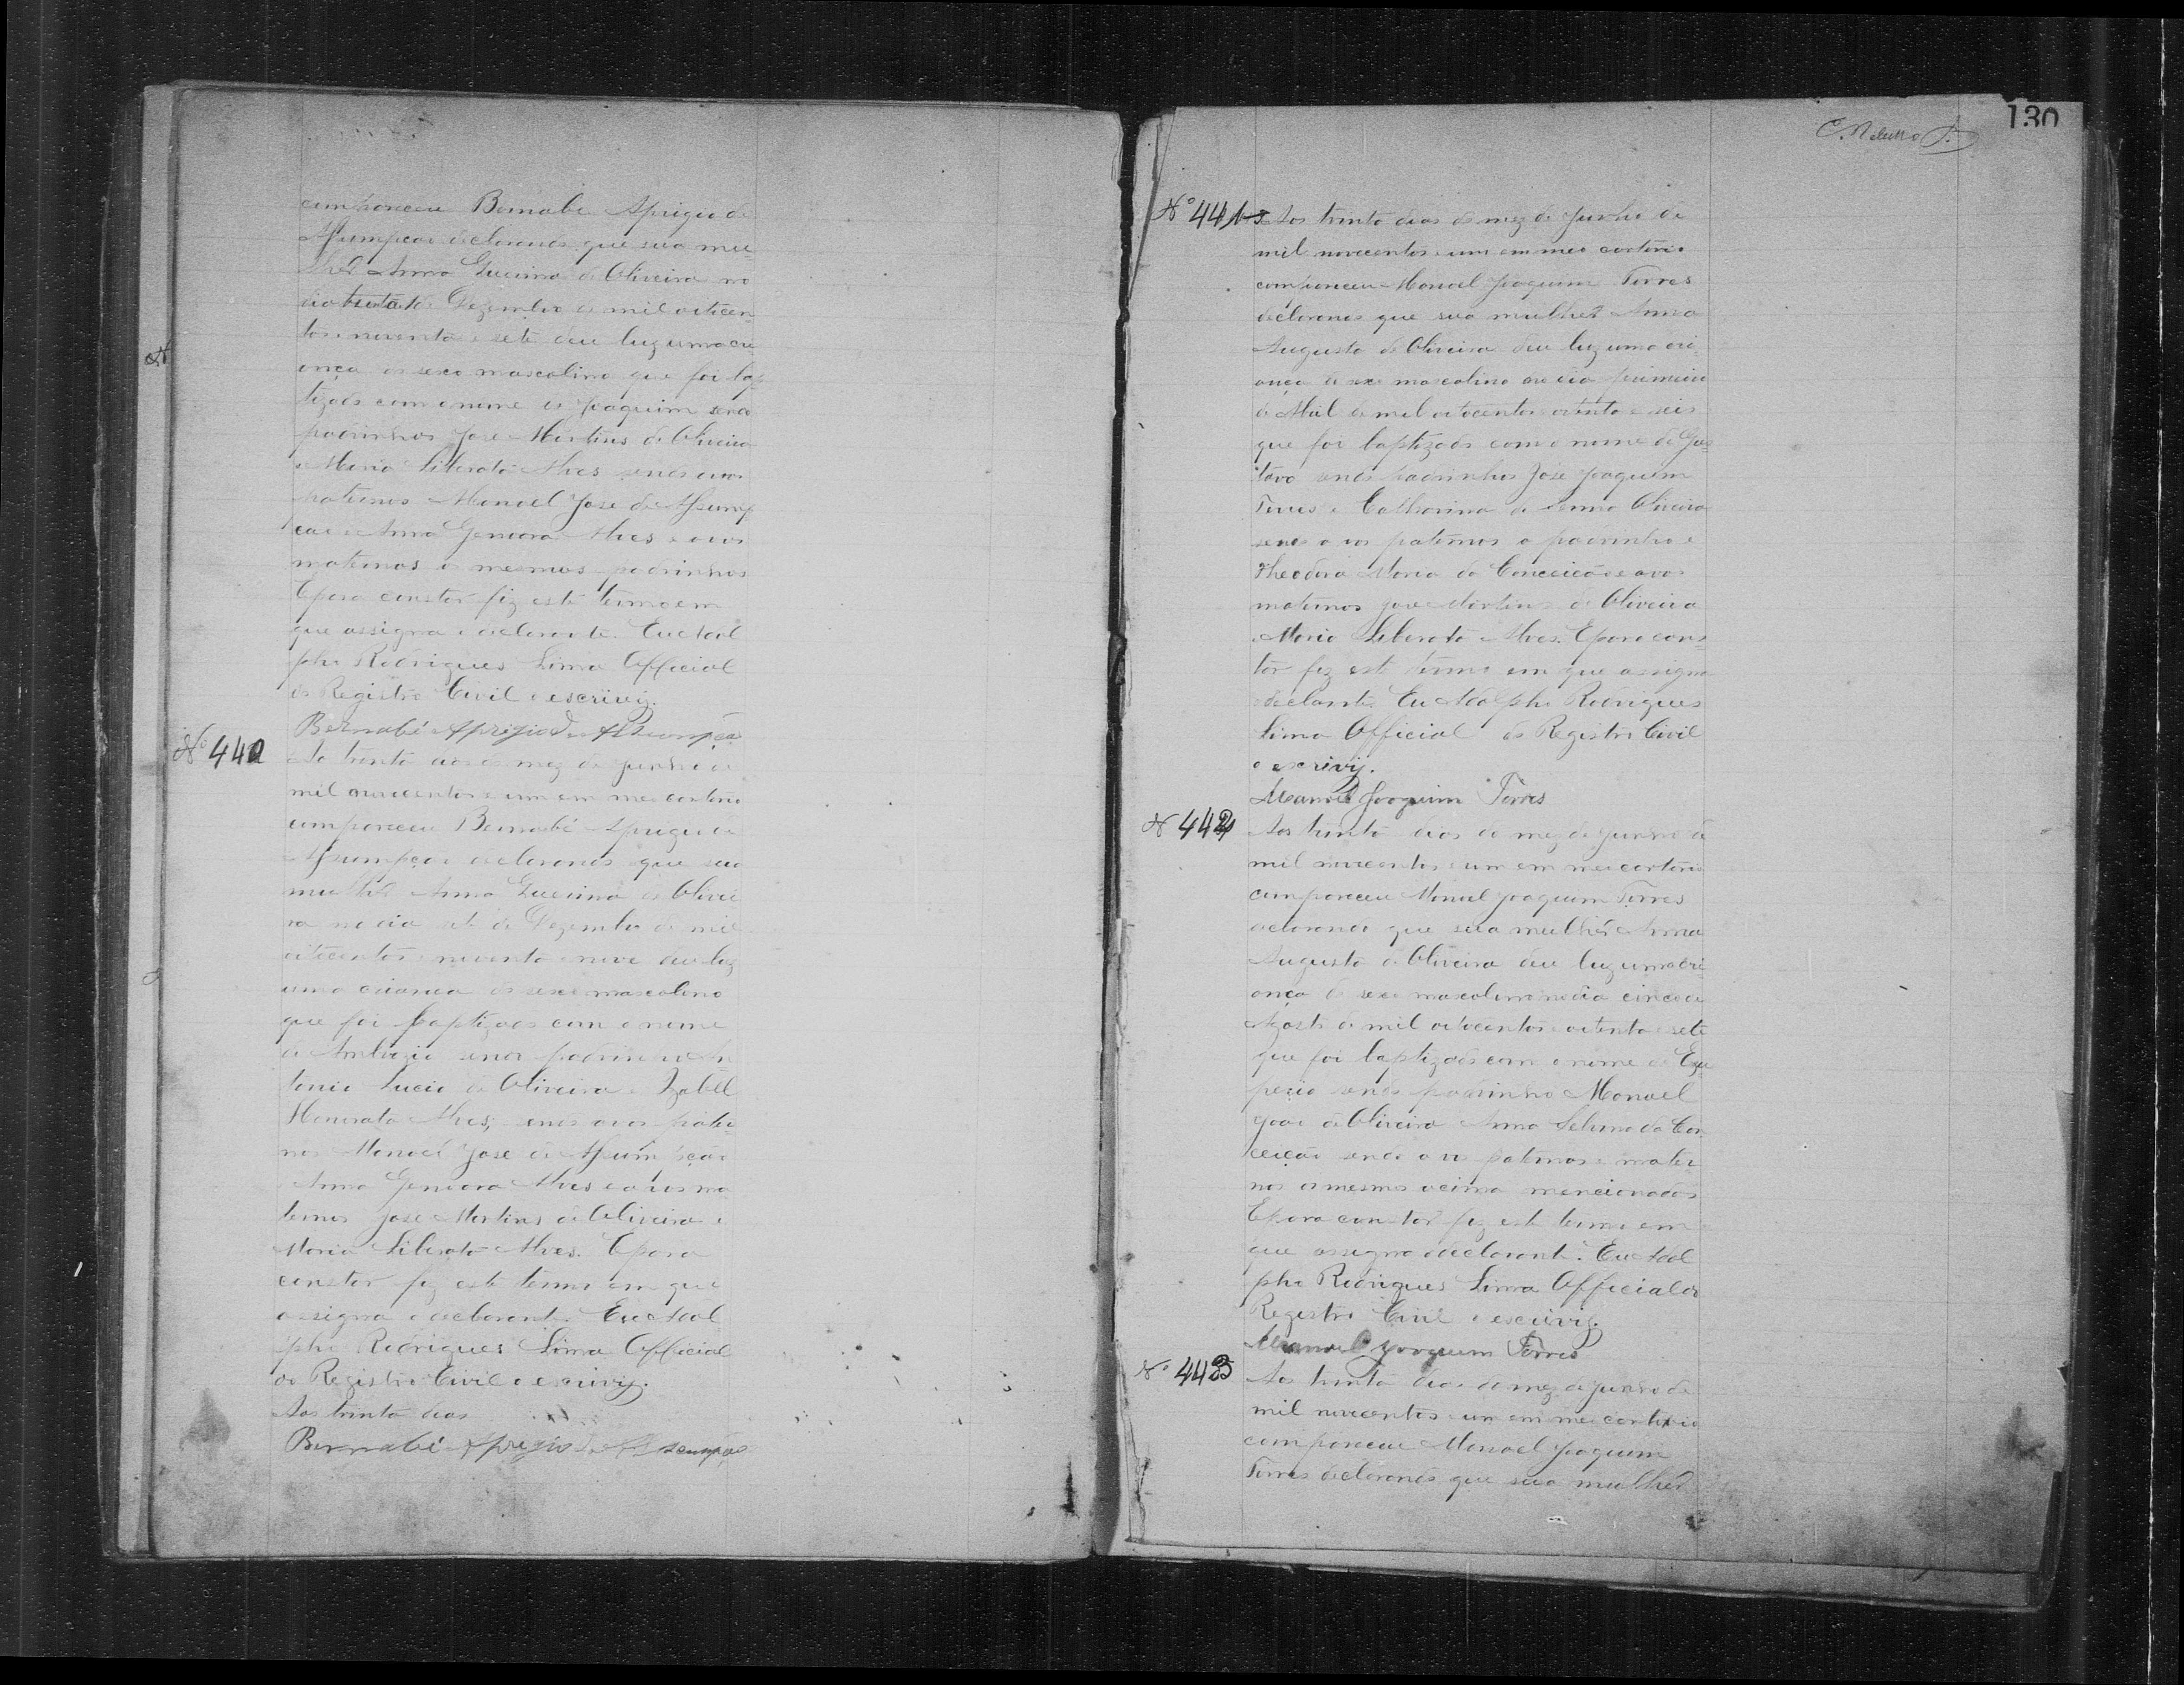 compareceu Bernabe Aprigio de
Assumpção declarando que sua mu-
lher Anna Guerina de Oliveira no
dia trinta de Dezembro de mil oitocen-
tos noventa e sete deu luz uma cri-
ança do sexo masculino que foi bap-
tizado com o nome de Joaquim sendo
padrinhos Jose Martins de Oliveira
e Maria Liberata Alves sendo avos
paternos Manoel Jose de Assump-
ção e Anna Genoara Alves e avos
maternos os mesmos padrinhos
E para constar fiz este termo em
que assigna o declarante. Eu Adol
pho Rodrigues Lima Official
do Registro Civil o escrivij.
Bernabé Aprigio de Assumpção
Nº 440
Ao trinta dias do mez de Junho de
mil novecentos e um em meo cartorio
compareceu Bernabé Aprigio de
Assumpção declarando que sua
mulher Anna Guerina de Olivei
ra no dia sete de Dezembro de mil
oitocentos noventa e nove deu luz
uma criança do sexo masculino
que foi baptizado com o nome
de Ambrozio sendo padrinho An
tonio Lucio de Oliveira e Izabel
Honorata Alves, sendo avos pater
nos Manoel Jose de Assumpção
e Anna Genoara Alves e avos ma
ternos Jose Martins de Oliveira e
Maria Liberata Alves. E para
constar fiz este termo em que
assigna o declarante. Eu Adol
pho Rodrigues Lima Official
do Registro Civil o escrivij.
Aos trinta dias
Bernabé Aprigio de Assumpção
130
Nº 441
Aos trinta dias do mez de Junho de
mil novecentos e um em meo cartorio
compareceu Manoel Joaquim Torres
declarando que sua mulher Anna
Augusta de Oliveira deu luz uma cri-
ança do sexo masculino no dia primeiro
de Abril de mil oitocentos oitenta e seis
que foi baptizado com o nome de Gus
tavo sendo padrinhos Jose Joaquim
Torres e Catharina de Senna Oliveira
sendo avos paternos o padrinho e
Theodora Maria da Conceição e avos
maternos Jose Martins de Oliveira
e Maria Liberata Alves. E para cons
tar fiz este termo em que assigna
o declante. Eu Adolpho Rodrigues
Lima Official do Registro Civil
o escrivij.
Manoel Joaquim Torres
Nº 442
Aos trinta dias do mez de Junho de
mil novecentos e um em meo cartorio
compareceu Manoel Joaquim Torres
declarando que sua mulher Anna
Augusta de Oliveira deu luz uma cri-
ança do sexo masculino no dia cinco de
Agosto de mil oitocentos oitenta e sete
que foi baptizado com o nome de Exu
perio sendo padrinho Manoel
João de Oliveira Anna da Con
ceição sendo avos paternos e mater
nos os mesmos acima mencionados
E para constar fiz este termo em
que assigna o declarante. Eu Adol
pho Rodrigues Lima Official do
Registro Civil o escrivij.
Manoel Joaquim Torres
Nº 443
Aos trinta dias do mez de Junho de
mil novecentos e um em meo cartorio
compareceu Manoel Joaquim
Torres declarando que sua mulher